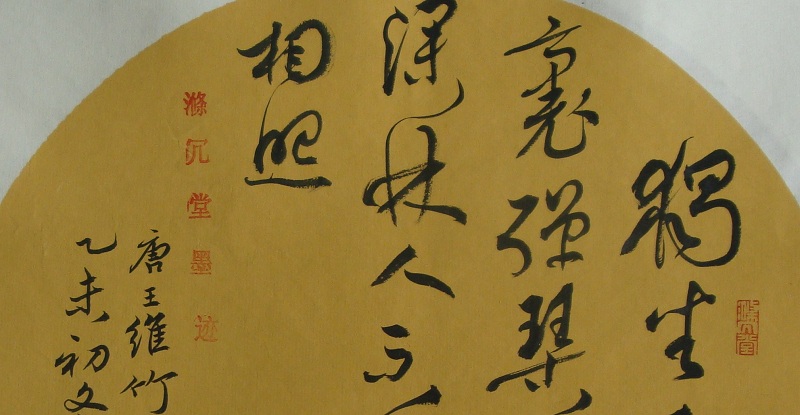 獨坐
裏弹琴
深林人不
相照
滌沉堂墨迹
唐王維竹
乙未初文